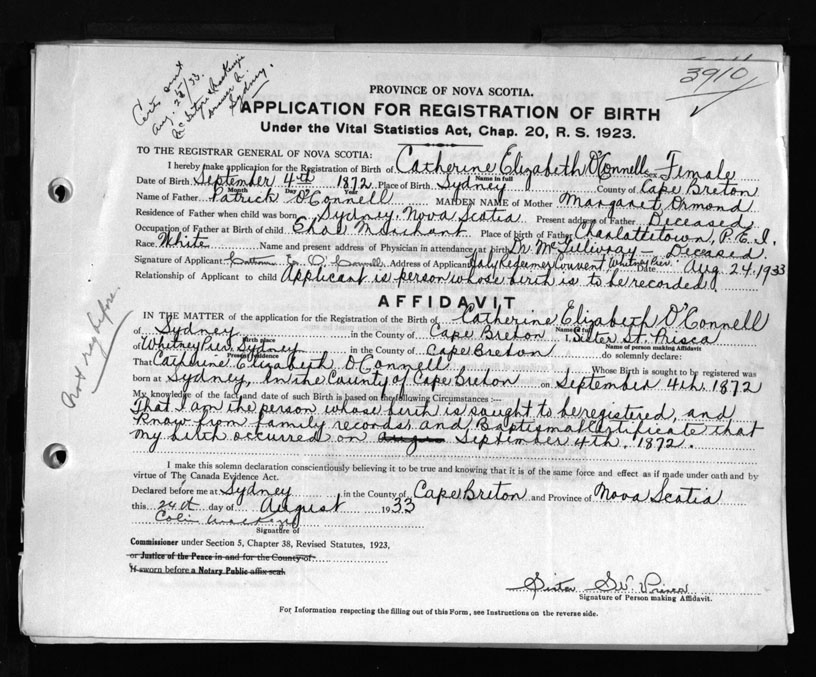 Certs sent
Aug. 28/33.
Sydney.
3910
PROVINCE OF NOVA SCOTIA.
APPLICATION FOR REGISTRATION OF BIRTH
Under the Vital Statistics Act, Chap. 20, R. S. 1923.
TO THE REGISTRAR GENERAL OF NOVA SCOTIA:
I hereby make application for the Registration of Birth of Catherine Elizabeth O'Connell Sex Female
Name in full
Date of Birth September 4th 1872 Place of Birth Sydney County of Cape Breton
Month Day Year
Name of Father Patrick O'Connell MAIDEN NAME of Mother Margaret Ormond
Residence of Father when child was born Sydney Nova Scotia Present address of Father Deceased
Occupation of Father at Birth of child Coal Merchant Place of birth of Father Charlottetown, P.E.I.
Race White Name and present address of Physician in attendance at birth Dr McGillivray — Deceased
Signature of Applicant Address of Applicant Holy Redeemer Convent, Whitney Pier. Date Aug. 24, 1933
Relationship of Applicant to child Applicant is person whose birth is to be recorded.
AFFIDAVIT
Not reg before.
IN THE MATTER of the application for the Registration of the Birth of Catherine Elizabeth O'Connell
Name in full
of Sydney in the County of Cape Breton I, Sister St. Prisca
Birth place Name of person making Affidavit
of Whitney Pier, Sydney in the County of Cape Breton do solemnly declare:
Present residence
That Catherine Elizabeth O'Connell Whose Birth is sought to be registered was
born at Sydney, in the County of Cape Breton on September 4th, 1872
My knowledge of the fact and date of such Birth is based on the following Circumstances :—
That I am the person whose birth is sought to be registered, and
know from family records and Baptismal Certificate that
my birth occurred on September 4th. 1872.
I make this solemn declaration conscientiously believing it to be true and knowing that it is of the same force and effect as if made under oath and by
virtue of The Canada Evidence Act.
Declared before me at Sydney in the County of Cape Breton and Province of Nova Scotia
this 24th day of August 1933
Colin
Signature of
Commissioner under Section 5, Chapter 38, Revised Statutes, 1923,
or Justice of the Peace in and for the County of
If sworn before a Notary Public affix seal.
Sister St. Prisca
Signature of Person making Affidavit.
For Information respecting the filling out of this Form, see Instructions on the reverse side.